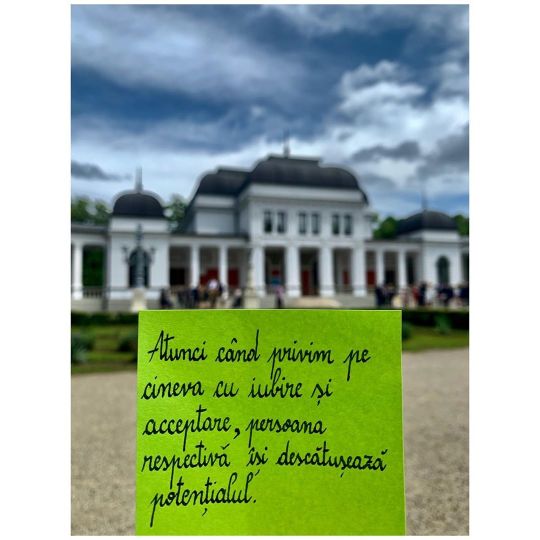 Atunci când privim pe
cineva cu iubire și
acceptare, persoana
respectivă își descătușează
potențialul.